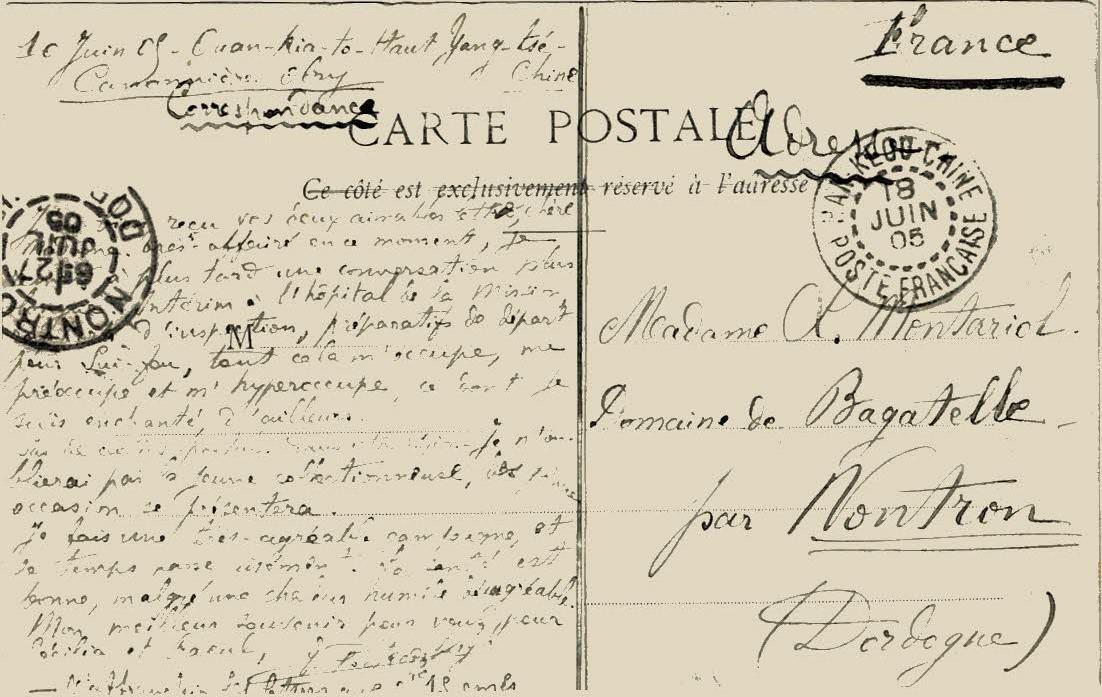 10 Juin 05 - Cuan-Kia-to-Haut Yang-tsé-
Canonnière Olry Chine
Correspondance
France
CARTE POSTALE
Adresse
Ce côté est exclusivement réservé à l'adresse
HAN-KEOU CHINE
18
JUIN
05
POSTE FRANÇAISE
NONTRON
DORD
27
JUIL
05
reçu vos deux aimables chère
très affairé en ce moment, je
plus tard une conversation plus
intérim à l'hôpital de la Mission
d'inspection, préparatifs de départ
M
pour Sui-fou, tout cela m'occupe, me
préoccupe et m'hyperoccupe, ce dont je
suis enchanté, d'ailleurs.
Je n'ou-
blierai pas la jeune collectionneuse, dès
occasion se présentera.
Je fais une très-agréable campagne, et
le temps passe aisément. La santé est
bonne, malgré une chaleur humide désagréable.
Mon meilleur souvenir pour vous, pour
et
15
Madame A. Montariol.
Domaine de Bagatelle -
par Nontron
(Dordogne)